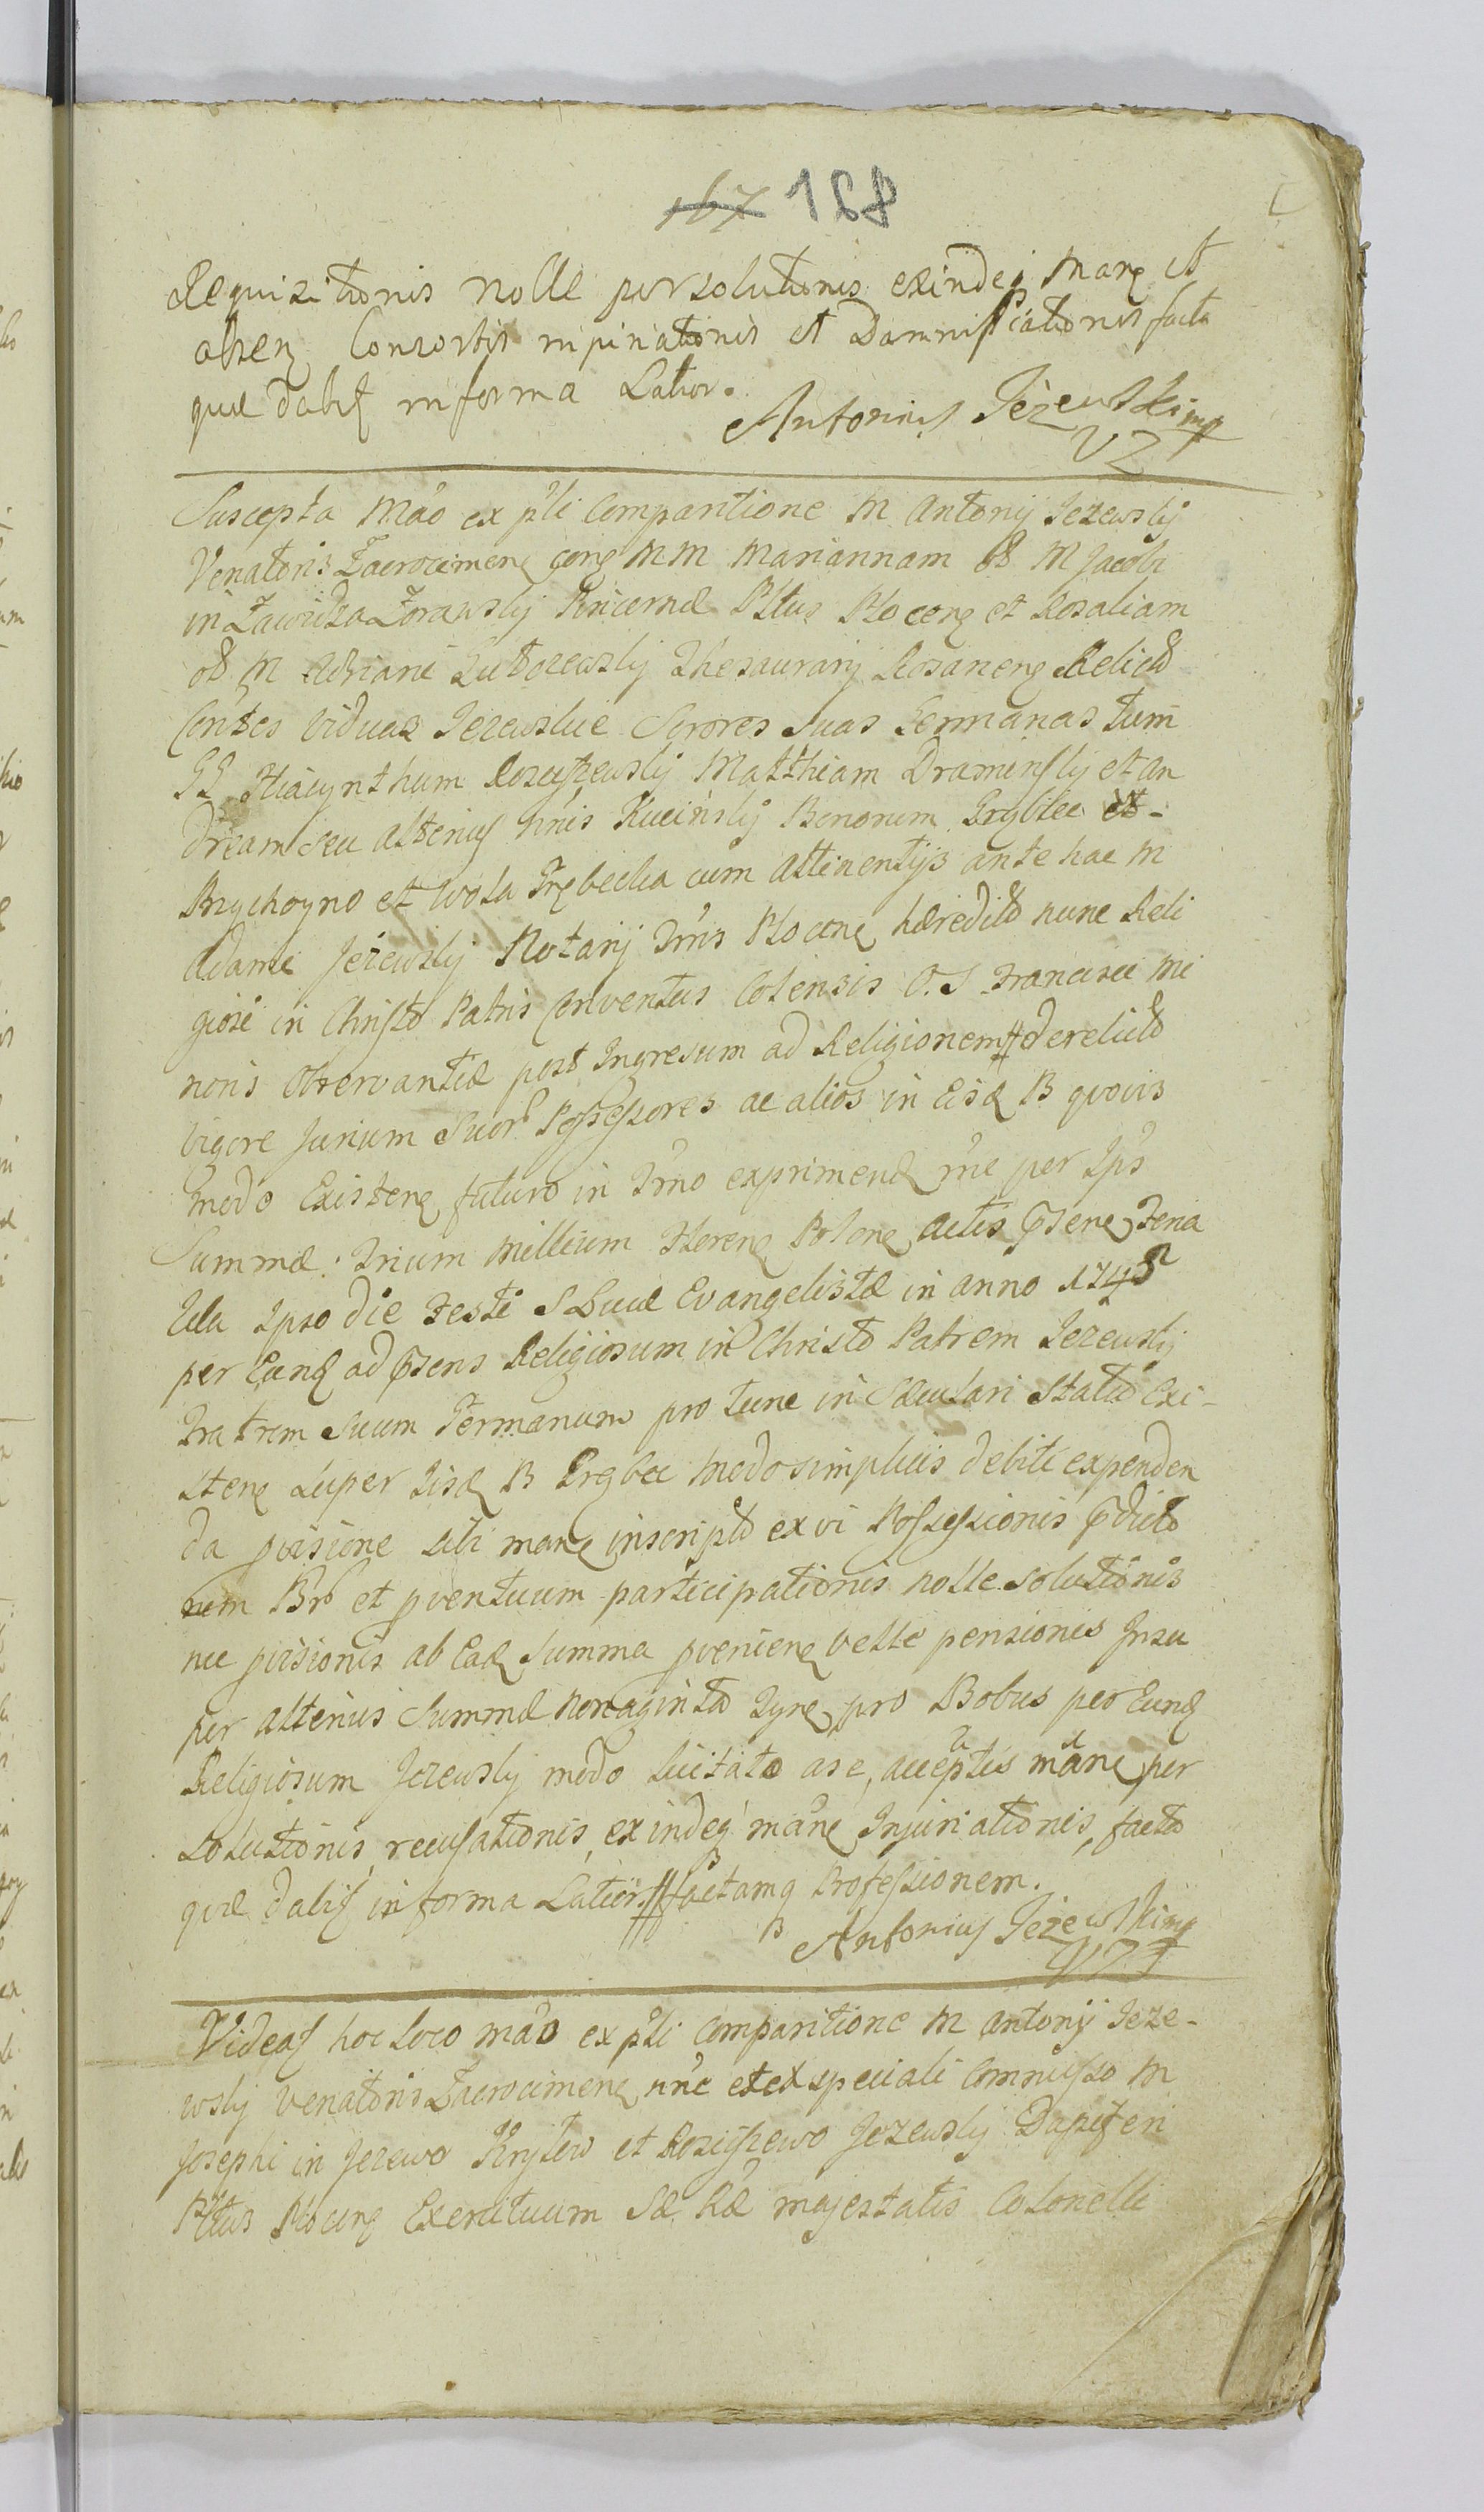 167 168
Requisitionis nolle persolutionis exindeq mane et
absen Consortis inpiriationis et Damnificationis facta
que dabit in forma Latior.
Antonius Jeżewski mp
VZ
Suscepta Mão ex pli Comparitione M Antonij Jezewskij
Venatoris Zacrocimen cong MM Mariannam olt M Jacobi
in Zawidza Zorawskij Pincernæ Pltus Plocen et Rosaliam
olt M Adriani Lutozewskij Thesaurarij Rosanen Relict
Contes viduas Jezewskie Sorores suas Germanas tum
GG Hiacynthum Rosciszewskij Matthiam Draminskij et An
dream seu alterius nnis Kucinskij Bonorum Grzblec et -
Brzychoyno et Wola Trębecka cum attinentijs ante hac M
Adami Jeżewskij Notarij Trris Plocen hæredit nunc Reli
giosi in Christo Patris Conventus Colensis O. S Francisci Mi
noris Observantiæ post Ingresum ad Religionem # derelict
vigore Jurium Suor Possessores ac alios in Eisd B quovis
modo Existen futuro in Trno exprimend rne per Ips
Summæ: Trium Millium Floren Polon actis Psen Feria
IIda Ipso die Festi S Lucæ Evangelistæ in anno 1745
per Eund ad Psens Religiosum in Christo Patrem Jezewskij
Fratrem Suum Germanum pro tunc in Sæculari Statu Exi-
sten super Iisd B Grzbec modo simplicis debiti expenden
da pvisione sibi mane inscript ex vi Possessionis Pdict
rum Br et pventuum participationis nolle solutionis
nec pvisionis ab Ead Summa pvenien velle pensionis Insu
per alterius Summæ nonaginta Tyn pro Bobus per Eund
Religiosum Jezewskij modo licitato a se, acceptis mane per
solutionis, recusationis, exindeq mane Injuriationis, facto
qvæ dabit in forma Latiori. # factamq Professionem.
Antonius Jeżewski mp
VZ
Videat hoc loco mão ex pli Comparitione M Antonij Jeze-
wskij Venatoris Zacrocimen nnc et ex speciali Commisso M
Josephi in Jezewo Krylew et Rosciszewo Jezewskij Dapiferi
Pltus Plocen Exercituum Sæ Ræ Majestatis Colonelli